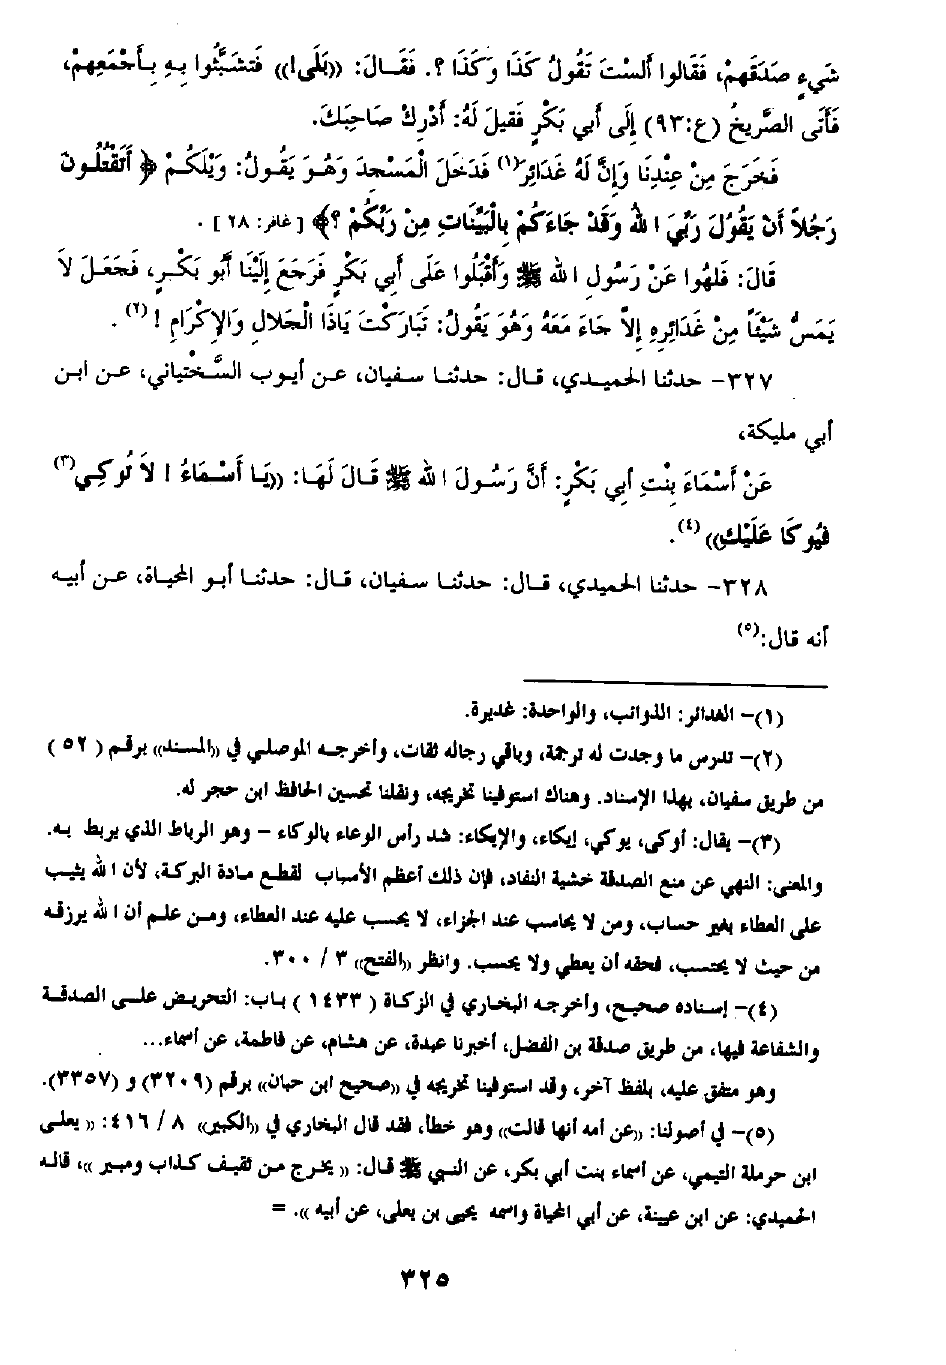 شَيْءٍ صَدَقَهُمْ، فَقَالُوا أَلَسْتَ تَقُولُ كَذَا وَكَذَا ؟. فَقَالَ: «بَلَى!» فَتَشَبَّثُوا بِهِ بِأَجْمَعِهِمْ،
فَأَتَى الصَّرِيخُ (ع:٩٣) إِلَى أَبِي بَكْرٍ فَقِيلَ لَهُ: أَدْرِكْ صَاحِبَكَ.
فَخَرَجَ مِنْ عِنْدِنَا وَإِنَّ لَهُ غَدَائِرَ(١) فَدَخَلَ الْمَسْجِدَ وَهُوَ يَقُولُ: وَيْلَكُمْ ﴿ أَتَقْتُلُونَ
رَجُلاً أَنْ يَقُولَ رَبِّيَ اللهُ وَقَدْ جَاءَكُمْ بِالْبَيِّنَاتِ مِنْ رَبِّكُمْ ؟﴾ [غافر: ٢٨] .
قَالَ: فَلَهُوا عَنْ رَسُولِ اللهِ ﷺ وَأَقْبَلُوا عَلَى أَبِي بَكْرٍ فَرَجَعَ إِلَيْنَا أَبُو بَكْرٍ، فَجَعَلَ لاَ
يَمَسُّ شَيْئاً مِنْ غَدَائِرِهِ إِلاَّ جَاءَ مَعَهُ وَهُوَ يَقُولُ: تَبَارَكْتَ يَاذَا الْجَلاَلِ وَالإِكْرَامِ !(٢) .
٣٢٧- حدثنا الحميدي، قال: حدثنا سفيان، عن أيوب السَّختياني، عن ابن
أبي مليكة،
عَنْ أَسْمَاءَ بِنْتِ أَبِي بَكْرٍ: أَنَّ رَسُولَ اللهِ ﷺ قَالَ لَهَا: «يَا أَسْمَاءُ ! لاَ تُوكِي(٣)
فَيُوكَا عَلَيْكِ»(٤).
٣٢٨- حدثنا الحميدي، قال: حدثنا سفيان، قال: حدثنا أبو المحياة، عن أبيه
أنه قال:(٥)
(١)- الغدائر: الذوائب، والواحدة: غديرة.
(٢)- تدرس ما وجدت له ترجمة، وباقي رجاله ثقات، وأخرجه الموصلي في «المسند» برقم ( ٥٢ )
من طريق سفيان، بهذا الإسناد. وهناك استوفينا تخريجه، ونقلنا تحسين الحافظ ابن حجر له.
(٣)- يقال: أوكى، يوكي، إيكاء، والإيكاء: شد رأس الوعاء بالوكاء – وهو الرباط الذي يربط به.
والمعنى: النهي عن منع الصدقة خشية النفاد، فإن ذلك أعظم الأسباب لقطع مادة البركة، لأن الله يثيب
على العطاء بغير حساب، ومن لا يحاسب عند الجزاء، لا يحسب عليه عند العطاء، ومن علم أن الله يرزقه
من حيث لا يحتسب، فحقه أن يعطي ولا يحسب. وانظر «الفتح» ٣ / ٣٠٠.
(٤)- إسناده صحيح، وأخرجه البخاري في الزكاة ( ١٤٣٣ ) باب: التحريض على الصدقة
والشفاعة فيها، من طريق صدقة بن الفضل، أخبرنا عبدة، عن هشام، عن فاطمة، عن أسماء...
وهو متفق عليه، بلفظ آخر، وقد استوفينا تخريجه في «صحيح ابن حبان» برقم (٣٢٠٩) و (٣٣٥٧).
(٥)- في أصولنا: «عن أمه أنها قالت» وهو خطأ، فقد قال البخاري في «الكبير» ٨ / ٤١٦: « يعلى
ابن حرملة التيمي، عن أسماء بنت أبي بكر، عن النبي ﷺ قال: « يخرج من ثقيف كذاب ومبير »، قاله
الحميدي: عن ابن عيينة، عن أبي المحياة واسمه يحيى بن يعلى، عن أبيه ». =
٣٢٥